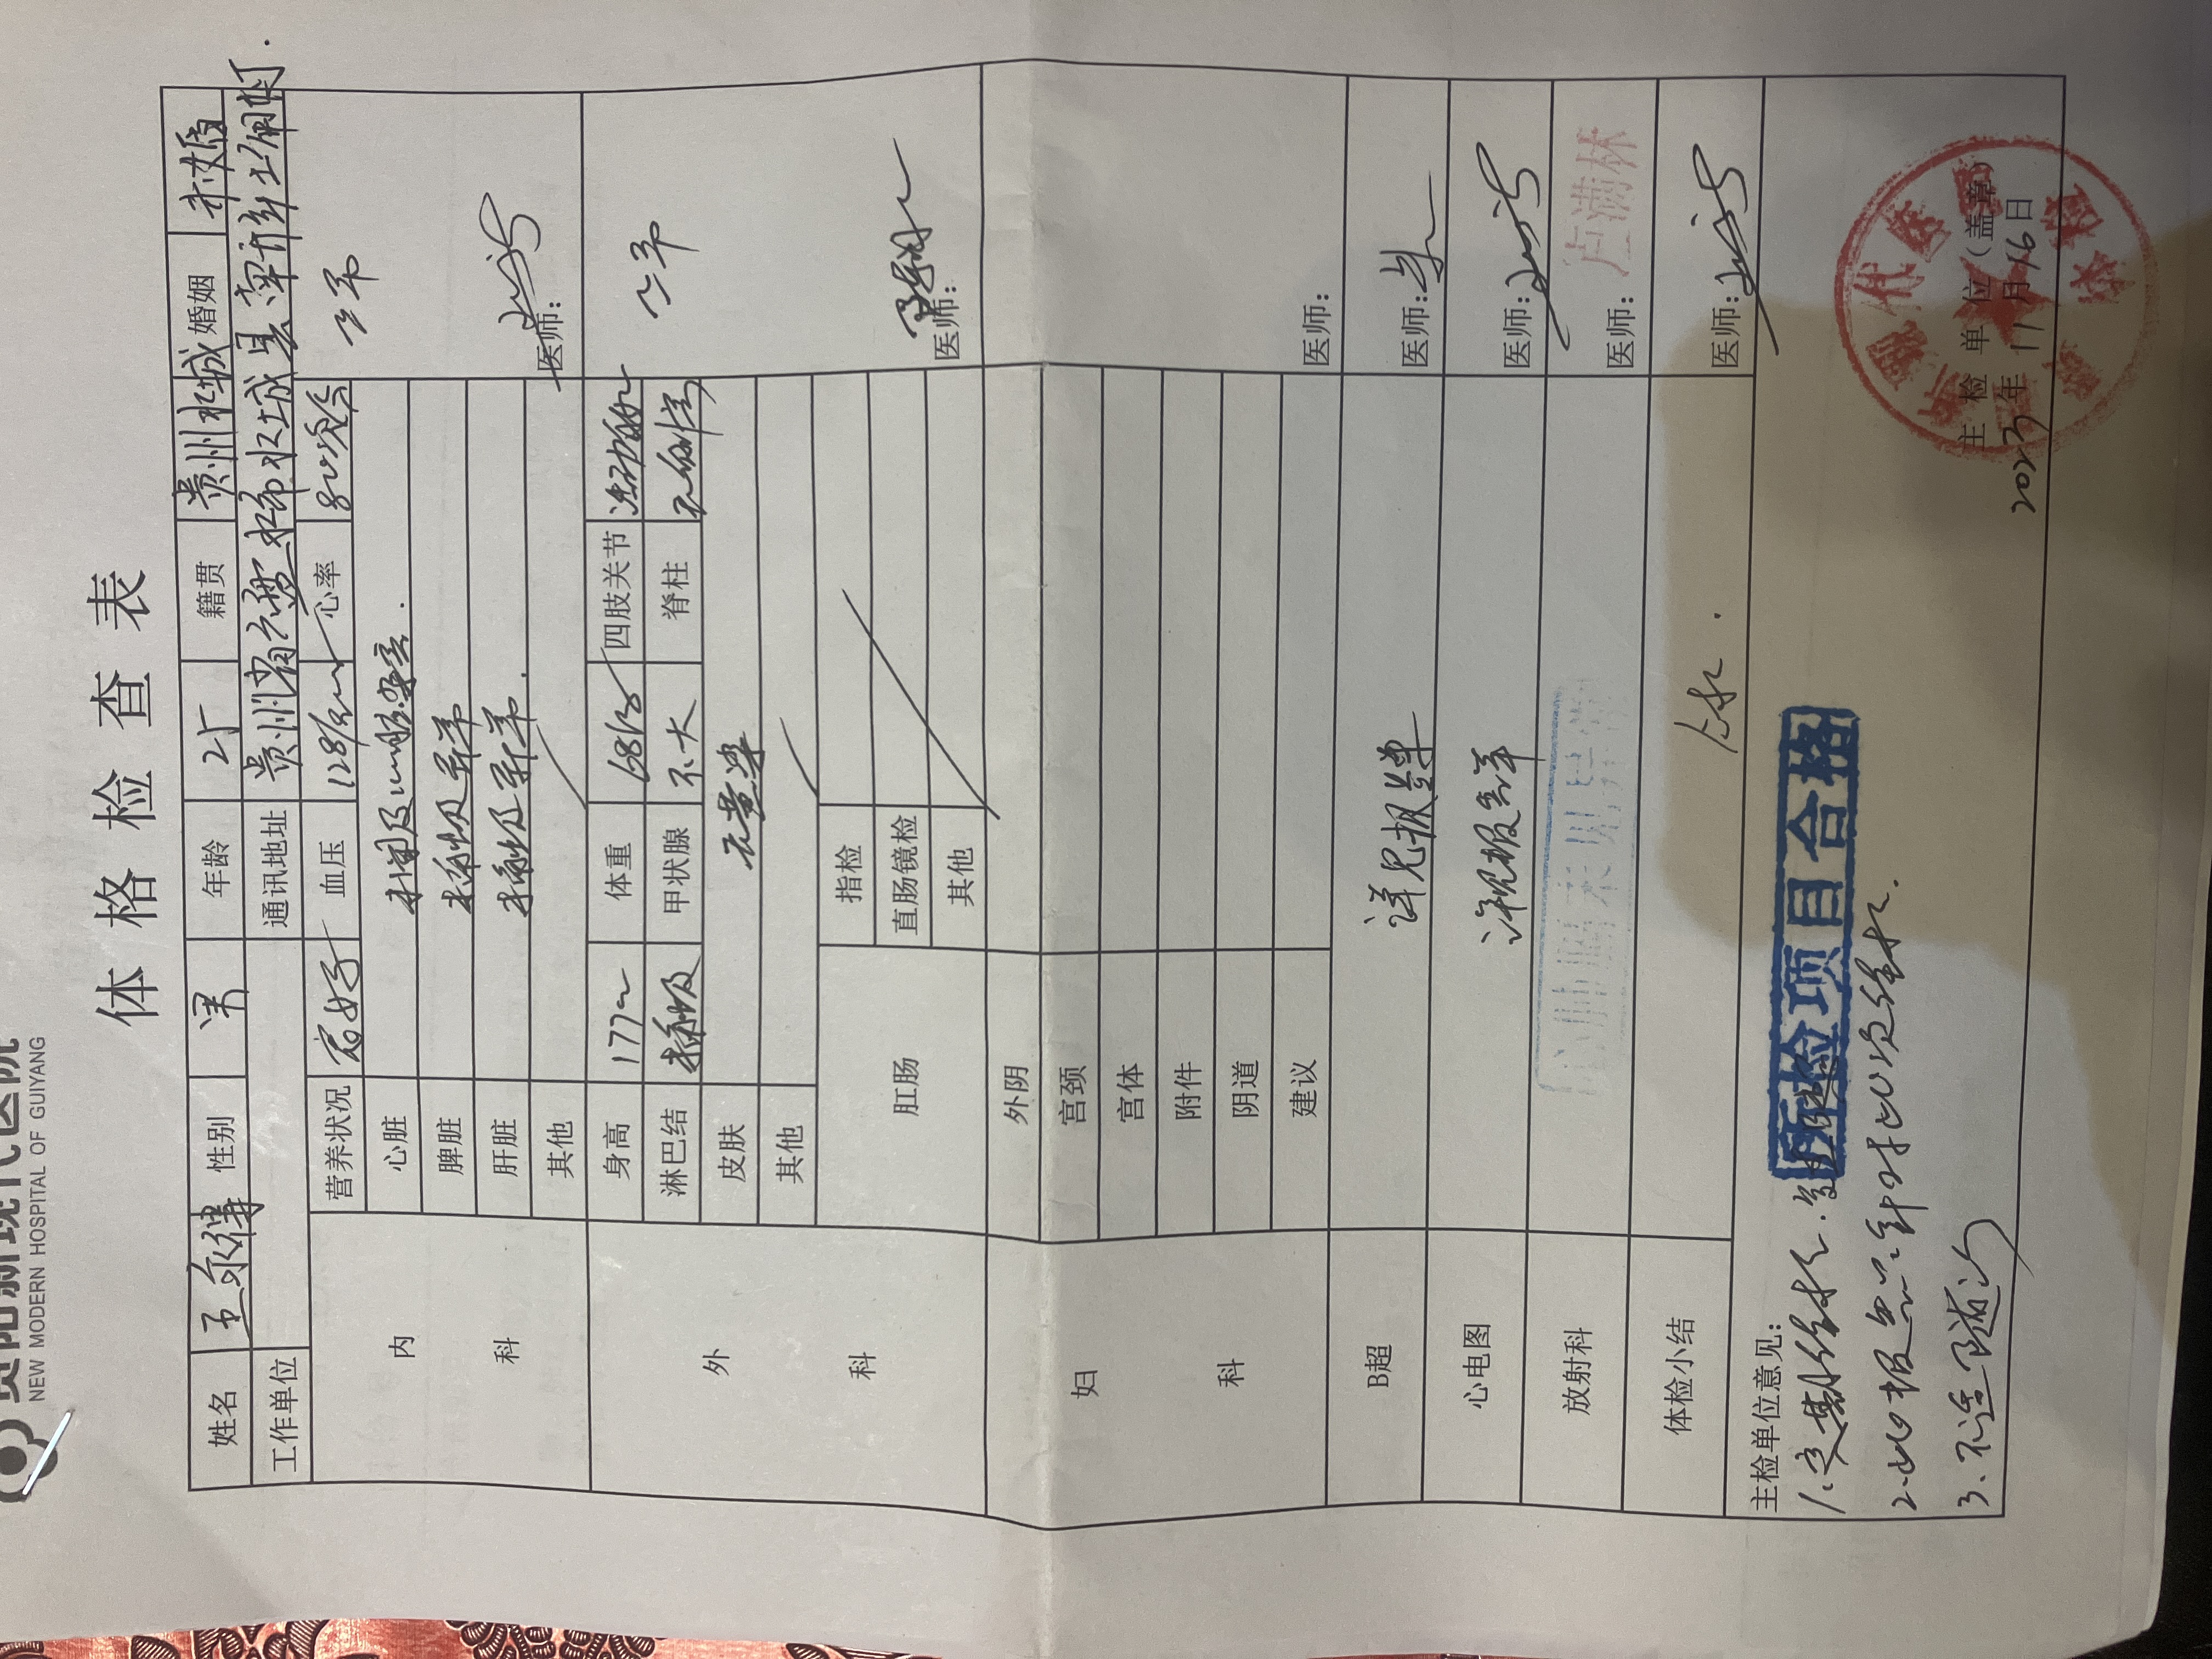 贵阳新现代医院
NEW MODERN HOSPITAL OF GUIYANG
体格检查表
姓名 性别 男 年龄 25 籍贯 贵州水城 婚姻 未婚
工作单位 通讯地址 贵州省六盘水市水城县
内科 营养状况 良好 血压 128/ 心率 80次/分 正常
心脏 未闻及心脏杂音.
脾脏 未触及异常
肝脏 未触及异常.
其他 医师:
外科 身高 177 体重 68kg 四肢关节 活动 正常
淋巴结 未触及 甲状腺 不大 脊柱
皮肤 无黄染
其他
肛肠 指检
直肠镜检
其他 医师:
妇科 外阴
宫颈
宫体
附件
阴道
建议 医师:
B超 详见报告单 医师:
心电图 详见报告单 医师:
放射科 心肺膈未见异常 医师: 卢满林
体检小结 合格. 医师:
主检单位意见:
所检项目合格
1.定期体检.
2.此报告只针对此次体检.
3.不适随诊
主检单位(盖章)
2023年11月16日